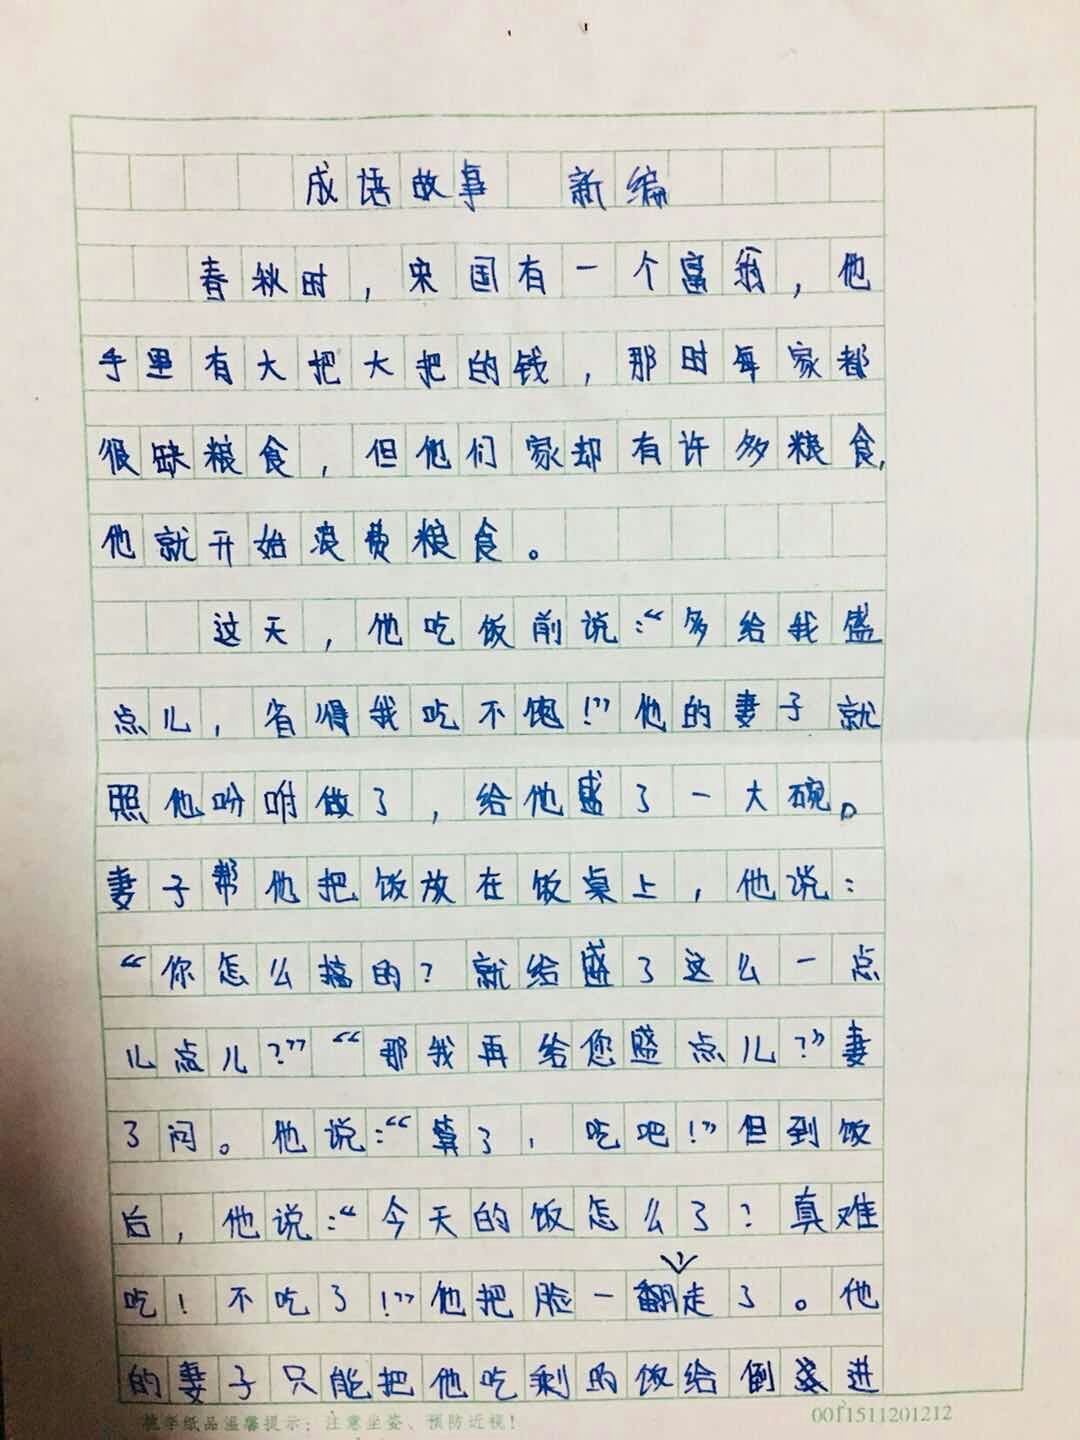 成语故事 新编
春秋时，宋国有一个富翁，他
手里有大把大把的钱，那时每家都
很缺粮食，但他们家却有许多粮食，
他就开始浪费粮食。
这天，他吃饭前说：“多给我盛
点儿，省得我吃不饱！”他的妻子就
照他吩咐做了，给他盛了一大碗。
妻子帮他把饭放在饭桌上，他说：
“你怎么搞的？就给盛了这么一点
儿点儿？”“那我再给您盛点儿？”妻
了问。他说：“算了，吃吧！”但到饭
后，他说：“今天的饭怎么了？真难
吃！不吃了！”他把脸一翻，走了。他
的妻子只能把他吃剩的饭给倒进
桃李纸品温馨提示：注意坐姿、预防近视！
0011511201212